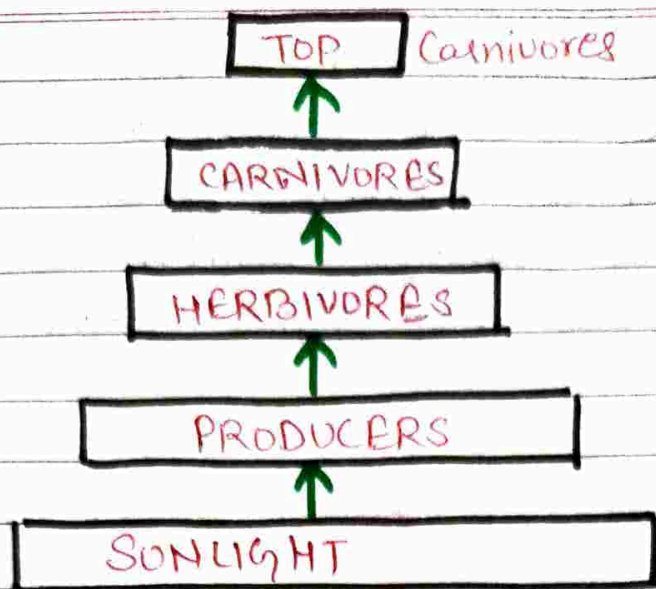 TOP Carnivores
CARNIVORES
HERBIVORES
PRODUCERS
SUNLIGHT